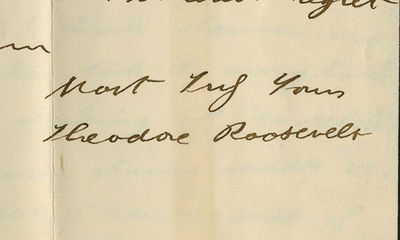 regret
Most Truly Yours
Theodore Roosevelt